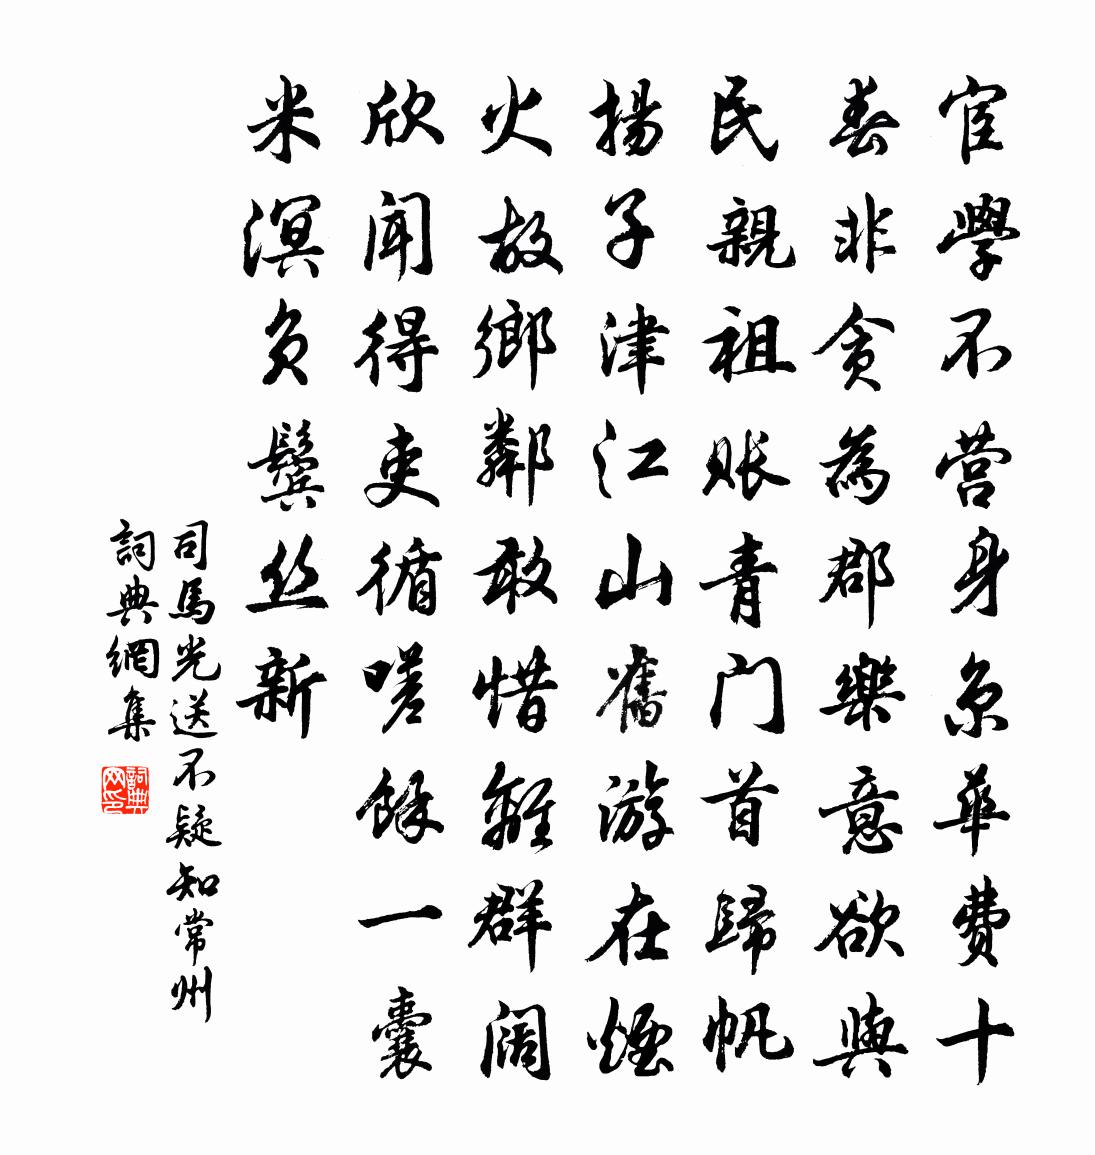 宦學不营身京華費十
春非貪為郡樂意欲與
民親祖账青门首歸帆
揚子津江山舊游在煙
火故鄉鄰敢惜離群阔
欣聞得吏循嗟餘一囊
米溟負鬓丝新
司馬光送不疑知常州
詞典網集
詞典网印